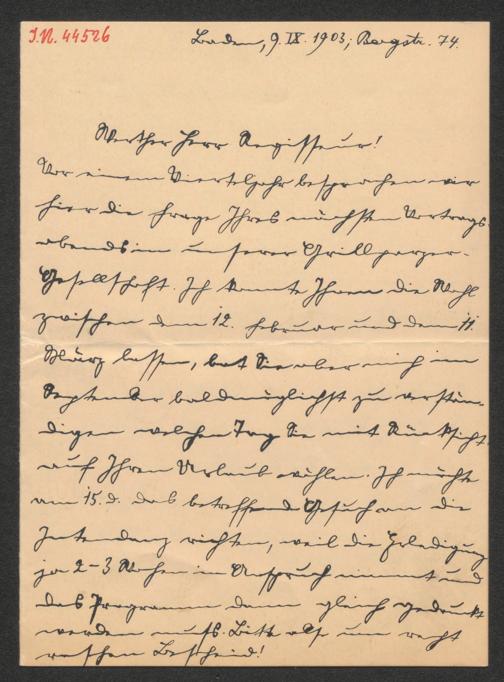 I.N. 44526
Baden, 9. IX. 1903; Bergstr. 74.
Werther Herr Regisseur!
Vor einem Vierteljahr besprachen wir
hier die Frage Ihres nächsten Vortrags-
abends in unserer Grillparzer-
Gesellschaft. Ich konnte Ihnen die Wahl
zwischen dem 12. Februar und dem 11.
März lassen, bat Sie aber mich im
September baldmöglichst zu verstän-
digen welchen Tag Sie mit Rücksicht
auf Ihren Urlaub wählen. Ich möchte
am 15. d. das betreffende Gesuch an die
Intendanz richten, weil die Erledigung
ja 2-3 Wochen in Anspruch nimmt und
das Programm dann gleich gedruckt
werden muß. Bitte also um recht
raschen Bescheid!